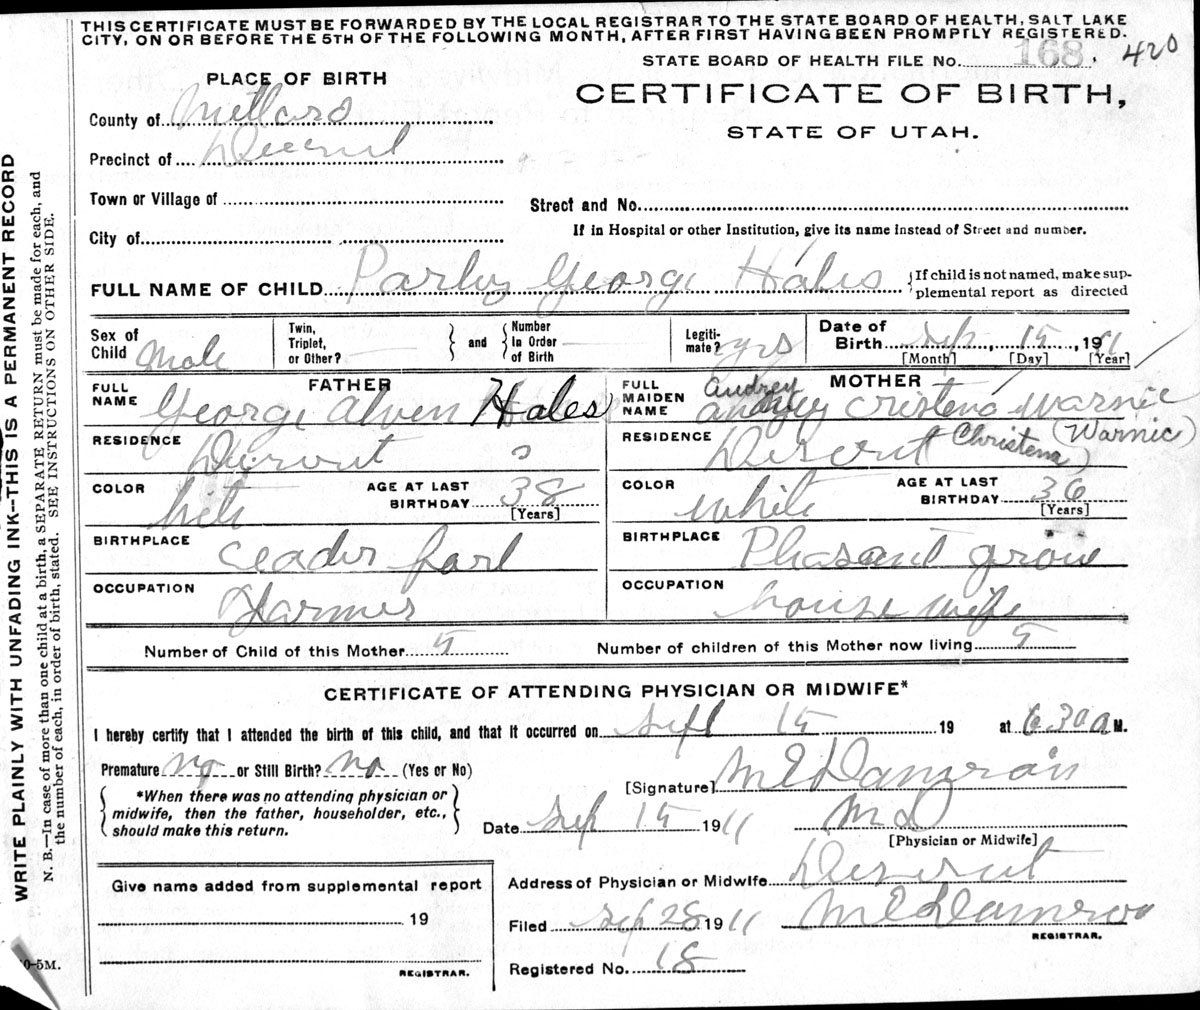 THIS CERTIFICATE MUST BE FORWARDED BY THE LOCAL REGISTRAR TO THE STATE BOARD OF HEALTH, SALT LAKE
CITY, ON OR BEFORE THE 5TH OF THE FOLLOWING MONTH, AFTER FIRST HAVING BEEN PROMPTLY REGISTERED.
STATE BOARD OF HEALTH FILE No. 168. 420
PLACE OF BIRTH
CERTIFICATE OF BIRTH,
STATE OF UTAH.
County of Millard
Precinct of
Town or Village of
Street and No.
City of
If in Hospital or other Institution, give its name instead of Street and number.
FULL NAME OF CHILD Parley George Hales
{If child is not named, make sup-
plemental report as directed
Sex of Child Male
Twin, Triplet, or Other?
and
Number In Order of Birth
Legiti-mate? yes
Date of Birth Sep, 15, 1911
[Month] [Day] [Year]
FATHER
FULL NAME George Alven Hales
RESIDENCE
COLOR
AGE AT LAST BIRTHDAY 38
[Years]
BIRTHPLACE Ceader forl
OCCUPATION Farmer
MOTHER
FULL MAIDEN NAME Audrey Cristena Warnic
Christena (Warnic)
RESIDENCE Deseret
COLOR white
AGE AT LAST BIRTHDAY 36
[Years]
BIRTHPLACE Pleasant grove
OCCUPATION house wife
Number of Child of this Mother 5
Number of children of this Mother now living 5
CERTIFICATE OF ATTENDING PHYSICIAN OR MIDWIFE*
I hereby certify that I attended the birth of this child, and that it occurred on Sept 15 19 at 6.30 a M.
Premature No or Still Birth? No (Yes or No)
*When there was no attending physician or
midwife, then the father, householder, etc.,
should make this return.
[Signature]
Date Sep 15 1911
MD
[Physician or Midwife]
Address of Physician or Midwife Deseret
Give name added from supplemental report
19
REGISTRAR.
Filed Sep 28 1911
REGISTRAR.
Registered No. 18
WRITE PLAINLY WITH UNFADING INK—THIS IS A PERMANENT RECORD
N. B.—In case of more than one child at a birth, a SEPARATE RETURN must be made for each, and
the number of each, in order of birth, stated. SEE INSTRUCTIONS ON OTHER SIDE.
0-5M.